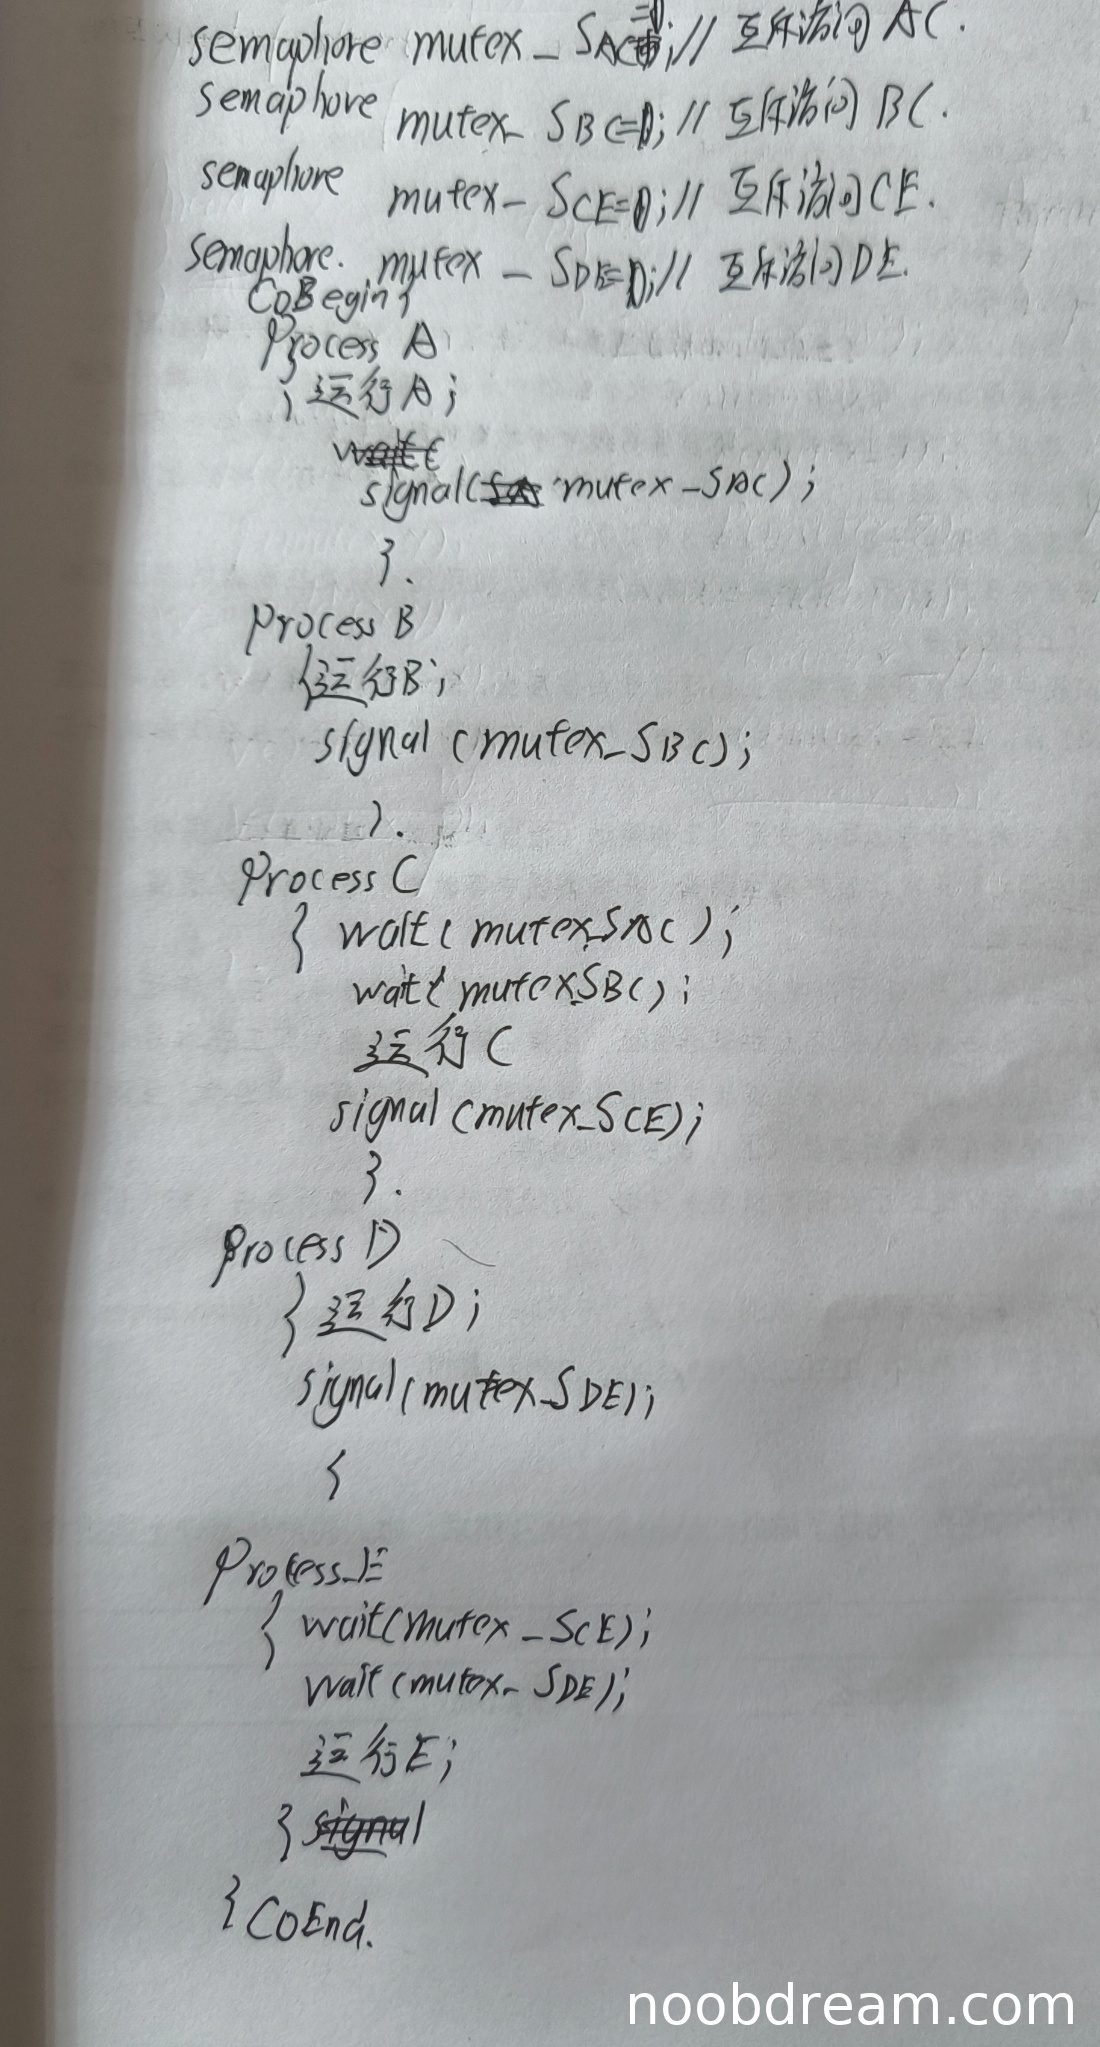 semaphore mutex_SAC=0;// 互斥访问 AC.
semaphore mutex_SBC=0;// 互斥访问 BC.
semaphore mutex_SCE=0;// 互斥访问CE.
semaphore. mutex_SDE=0;// 互斥访问DE.
CoBegin{
Process A
{运行A;
signal(mutex_SAC);
}.
Process B
{运行B;
signal (mutex_SBC);
}.
Process C
{ wait( mutex_SAC);
wait( mutex_SBC);
运行C
signal (mutex_SCE);
}.
Process D
{ 运行D;
signal(mutex_SDE);
{
Process_E
{ wait(mutex_SCE);
wait(mutex_SDE);
运行E;
}
} CoEnd.
noobdream.com